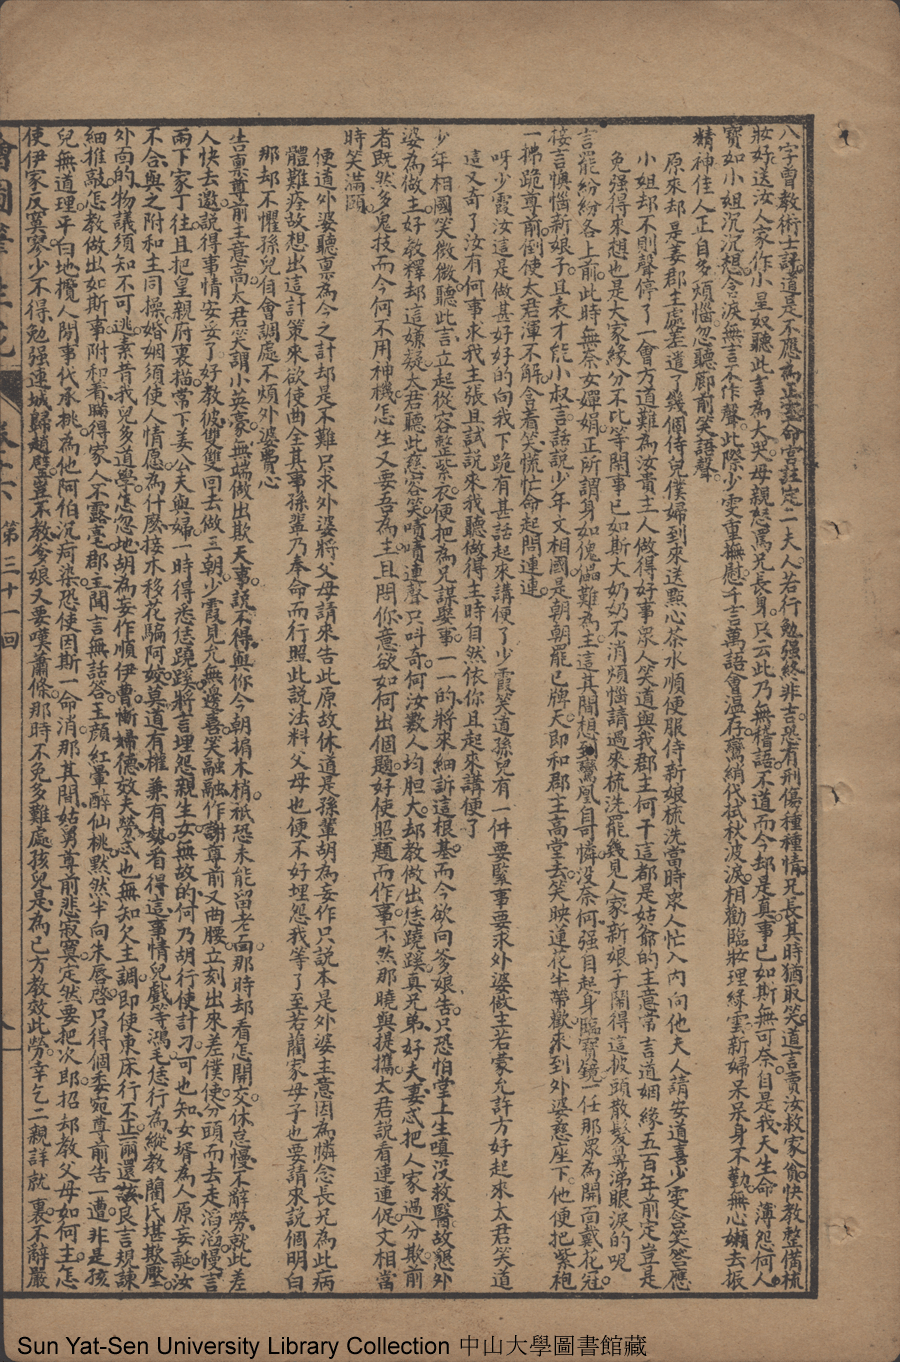 八字曾教術士評道是不應為正室命宮註定二夫人若行勉强終非吉恐有刑傷種種情兄長其時猶取笑道言賣汝救家貧快教整備梳
妝好送汝人家作小星奴聽此言為大哭母親怒罵兄長身只云此乃無稽語不道而今却是真事已如斯無可奈自是我天生命薄怨何人
寶如小姐沉沉想念淚無言不作聲此際少雯重撫慰千言萬語會溫存鸞綃代拭秋波淚相勸臨妝理綠雲新婦呆呆身不動無心嬾去振
精神佳人正自多煩惱忽聽廊前笑語聲
原來却是姜郡主處差遣了幾個侍兒僕婦到來送點心茶水順便服侍新娘梳洗當時衆人忙入內向他夫人請安道喜少雯含笑答應
小姐却不則聲停了一會方道難為汝貴主人做得好事衆人笑道與我郡主何干這都是姑爺的主意常言道姻緣五百年前定豈是
免强得來想也是大家緣分不比等閑事已如斯大奶奶不消煩惱請過來梳洗罷幾見人家新娘子鬧得這披頭散髮鼻涕眼淚的呢
言罷紛紛各上前此時無奈女嬋娟正所謂身如傀儡難為主這其間想到鸞凰自可憐没奈何强自起身臨寶鏡一任那衆為開面戴花冠
接言懊惱新娘子且表才能小叔言話説少年文相國是朝朝罷已牌天即和郡主高堂去笑映蓮花半帶歡來到外婆慈座下他便把紫袍
一拂跪尊前倒使太君渾不解含着笑慌忙命起問連連
呀少霞汝這是做甚好好的向我下跪有甚話起來講便了少霞笑道孫兒有一件要緊事要求外婆做主若蒙允許方好起來太君笑道
這又奇了汝有何事求我主張且試説來我聽做得主時自然依你且起來講便了
少年相國笑微微聽此言立起從容整紫衣便把為兄謀娶事一一的將來細訴這根基而今欲向爹娘告只恐怕堂上生嗔没救醫故懇外
婆為做主好教釋却這嫌疑太君聽此慈容笑嘖嘖連聲只叫奇何汝數人均胆大却教做出恁蹺蹊真兄弟好夫妻忒把人家過分欺前
者既然多鬼技而今何不用神機怎生又要吾為主且問你意欲如何出個題好使照題而作事不然那曉與提攜太君説看連連促文相當
時笑滿頤
便道外婆聽禀為今之計却是不難只求外婆將父母請來告此原故休道是孫輩胡為妄作只説本是外婆主意因為憐念長兄為此病
體難痊故想出這計策來欲使曲全其事孫輩乃奉命而行照此説法料父母也便不好埋怨我等了至若藺家母子也要請來説個明白
那却不懼孫兒自會調處不煩外婆費心
告禀尊前主意高太君笑謂小英豪無端做出欺天事説不得與你今朝掮木梢祇恐未能留老面那時却看怎開交休怠慢不辭勞就此差
人快去邀説得事情安妥了好教彼雙雙回去做三朝少霞見允無邊喜笑融融作謝尊前又曲腰立刻出來差僕使分頭而去走滔滔慢言
兩下家丁往且把皇親府裏描當下姜公夫與婦一時得悉恁蹺蹊將言埋怨親生女無故的何乃胡行使計刁可也知女壻為人原妄誕汝
不合與之附和主同操婚姻須使人情愿為什麽接木移花騙阿姣莫道有權兼有勢看得這事情兒戲等鴻毛恁行為縱教藺氏堪欺壓
外面的物議須知不可逃素昔我兒多道學怎忽地胡為妄作順伊曹慚婦德效夫勞忒也無知欠主調即使東床行不正爾還該良言規諫
細推敲怎教做出如斯事附和着瞞得家人不露毫郡主聞言無話答玉顔紅暈醉仙桃默然半向朱唇啓只得個委宛尊前告一遭非是孩
兒無道理平白地攬人閒事代承桃為他阿伯沉疴染恐使因斯一命消那其間姑舅尊前悲寂寞定然要把次郎招却教父母如何主怎
使伊家反寞寥少不得勉强連城歸趙璧豈不教爹娘又要嘆蕭條那時不免多難處孩兒是為已方教效此勞幸乞二親詳就裏不辭嚴
繪圖筆生花 卷十六 第三十一回 八
Sun Yat-Sen University Library Collection 中山大學圖書館藏